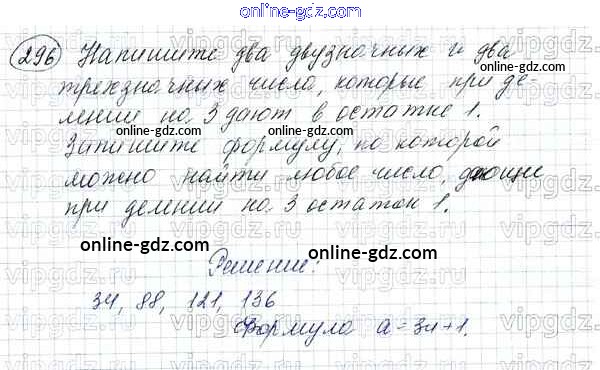 online-gdz.com
296 Напишите два двузначных и два
трехзначных числа, которые при де-
лении на 3 дают в остатке 1.
online-gdz.com online-gdz.com
Запишите формулу, по которой
можно найти любое число, дающее
при делении на 3 остаток 1.
online-gdz.com online-gdz.com
Решение:
34, 88, 121, 136
Формула a = 3n+1.
online-gdz.com